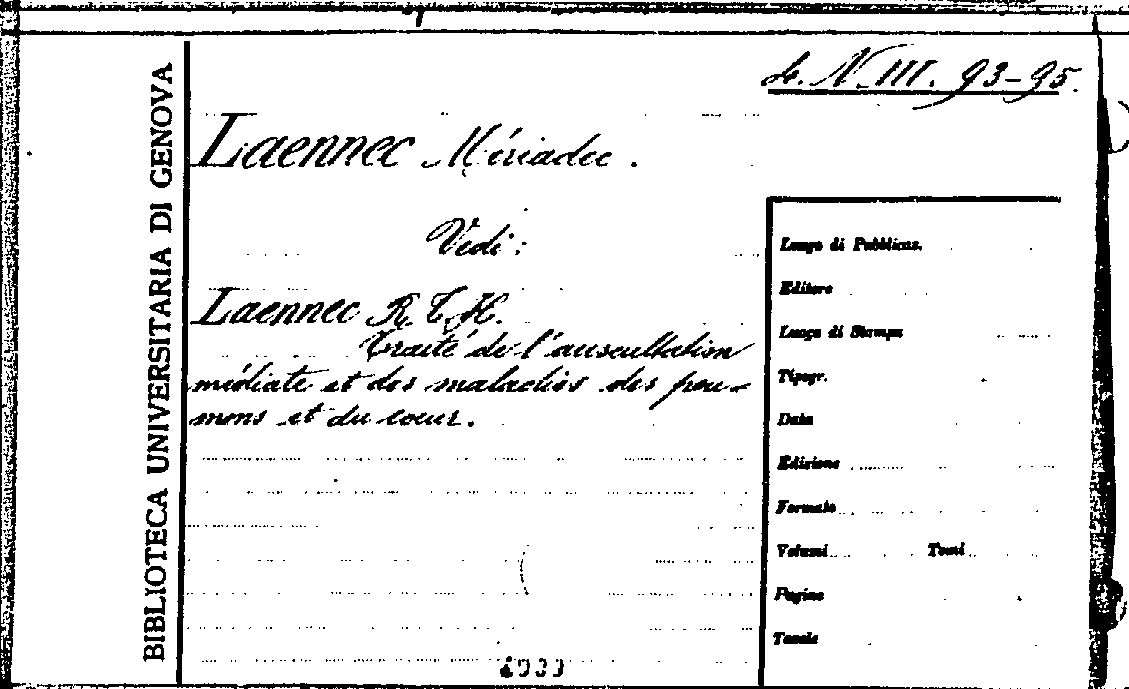 4. N. III. 93-95.
BIBLIOTECA UNIVERSITARIA DI GENOVA
Laennec Mériadec.
Vedi:
Laennec R. T. H.
Traité de l'auscultation
médiate et des maladies des pou-
mons et du coeur.
Luogo di Pubblicaz.
Editore
Luogo di Stampa
Tipogr.
Data
Edizione
Formato
Volumi Tomi
Pagine
Tavole